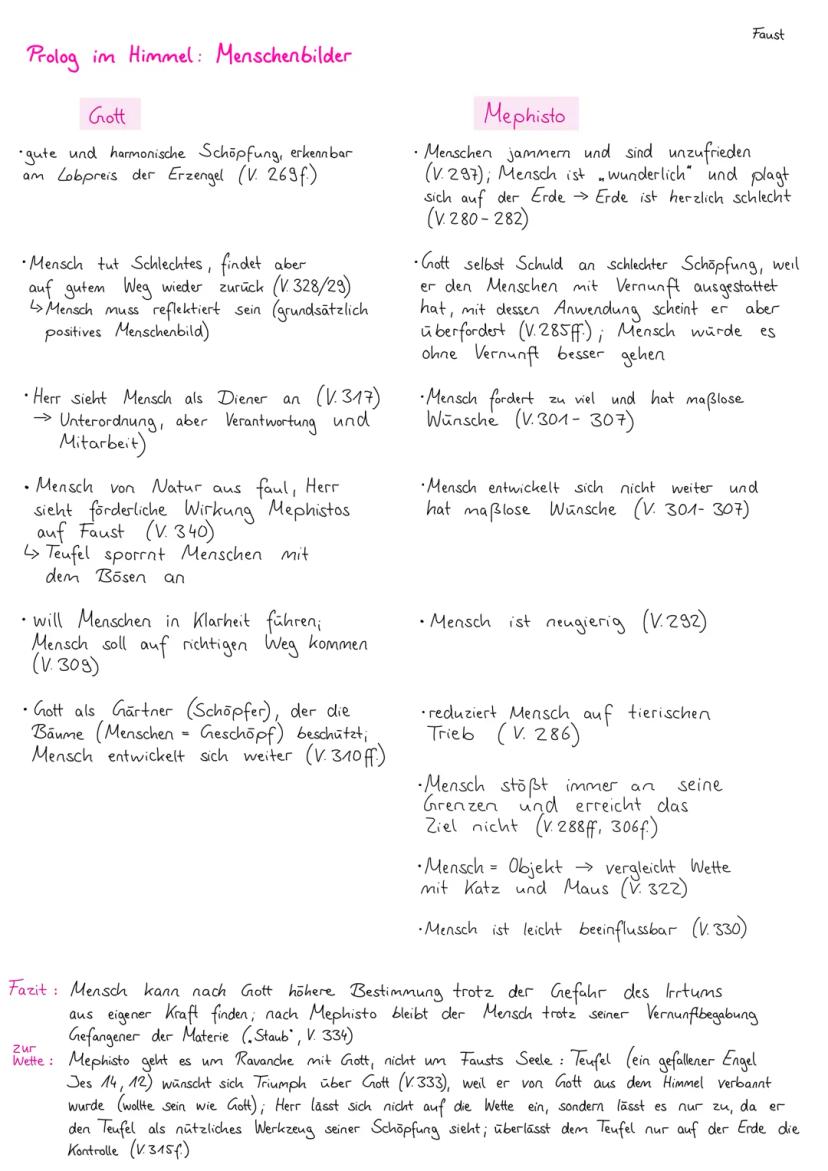 Faust
Prolog im Himmel: Menschenbilder
Gott
· gute und harmonische Schöpfung, erkennbar
am Lobpreis der Erzengel (V. 269f.)
· Mensch tut Schlechtes, findet aber
auf gutem Weg wieder zurück (V. 328/29)
↳ Mensch muss reflektiert sein (grundsätzlich
positives Menschenbild)
· Herr sieht Mensch als Diener an (V. 317)
→ Unterordnung, aber Verantwortung und
Mitarbeit)
· Mensch von Natur aus faul, Herr
sieht förderliche Wirkung Mephistos
auf Faust (V. 340)
↳ Teufel sporrnt Menschen mit
dem Bösen an
· will Menschen in Klarheit führen;
Mensch soll auf richtigen Weg kommen
(V. 309)
· Gott als Gärtner (Schöpfer), der die
Bäume (Menschen = Geschöpf) beschützt;
Mensch entwickelt sich weiter (V. 310ff.)
Mephisto
· Menschen jammern und sind unzufrieden
(V. 297); Mensch ist „wunderlich" und plagt
sich auf der Erde → Erde ist herzlich schlecht
(V. 280 - 282)
· Gott selbst Schuld an schlechter Schöpfung, weil
er den Menschen mit Vernunft ausgestattet
hat, mit dessen Anwendung scheint er aber
überfordert (V. 285ff.); Mensch würde es
ohne Vernunft besser gehen
· Mensch fordert zu viel und hat maßlose
Wünsche (V. 301 - 307)
· Mensch entwickelt sich nicht weiter und
hat maßlose Wünsche (V. 301- 307)
· Mensch ist neugierig (V. 292)
· reduziert Mensch auf tierischen
Trieb (V. 286)
· Mensch stößt immer an seine
Grenzen und erreicht das
Ziel nicht (V. 288ff, 306f.)
· Mensch = Objekt → vergleicht Wette
mit Katz und Maus (V. 322)
· Mensch ist leicht beeinflussbar (V. 330)
Fazit: Mensch kann nach Gott höhere Bestimmung trotz der Gefahr des Irrtums
aus eigener Kraft finden; nach Mephisto bleibt der Mensch trotz seiner Vernunftbegabung
Gefangener der Materie („Staub", V. 334)
zur
Wette: Mephisto geht es um Ravanche mit Gott, nicht um Fausts Seele: Teufel (ein gefallener Engel
Jes 14, 12) wünscht sich Triumph über Gott (V. 333), weil er von Gott aus dem Himmel verbannt
wurde (wollte sein wie Gott); Herr lässt sich nicht auf die Wette ein, sondern lässt es nur zu, da er
den Teufel als nützliches Werkzeug seiner Schöpfung sieht; überlässt dem Teufel nur auf der Erde die
Kontrolle (V. 315f.)